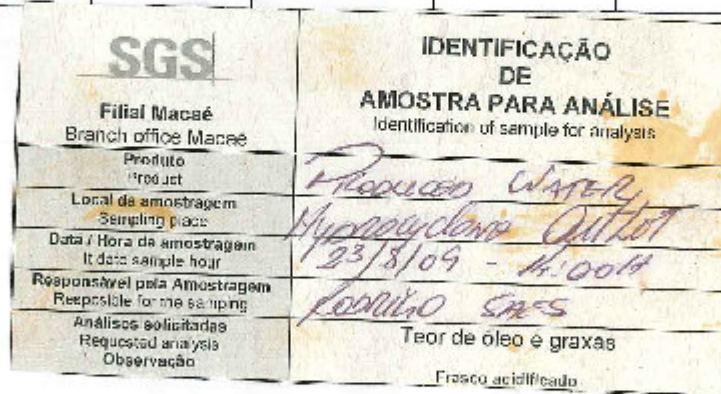 SGS
Filial Macaé
Branch office Macae
IDENTIFICAÇÃO
DE
AMOSTRA PARA ANÁLISE
Identification of sample for analysis
Produto
Product
PRODUCED WATER
Local de amostragem
Sampling place
Hydrocyclone Outlet
Data / Hora da amostragem
It date sample hour
23/8/09 -
Responsável pela Amostragem
Resposible for the samping
RODRIGO
Análises solicitadas
Requested analysis
Observação
Teor de óleo e graxas
Frasco acidificado